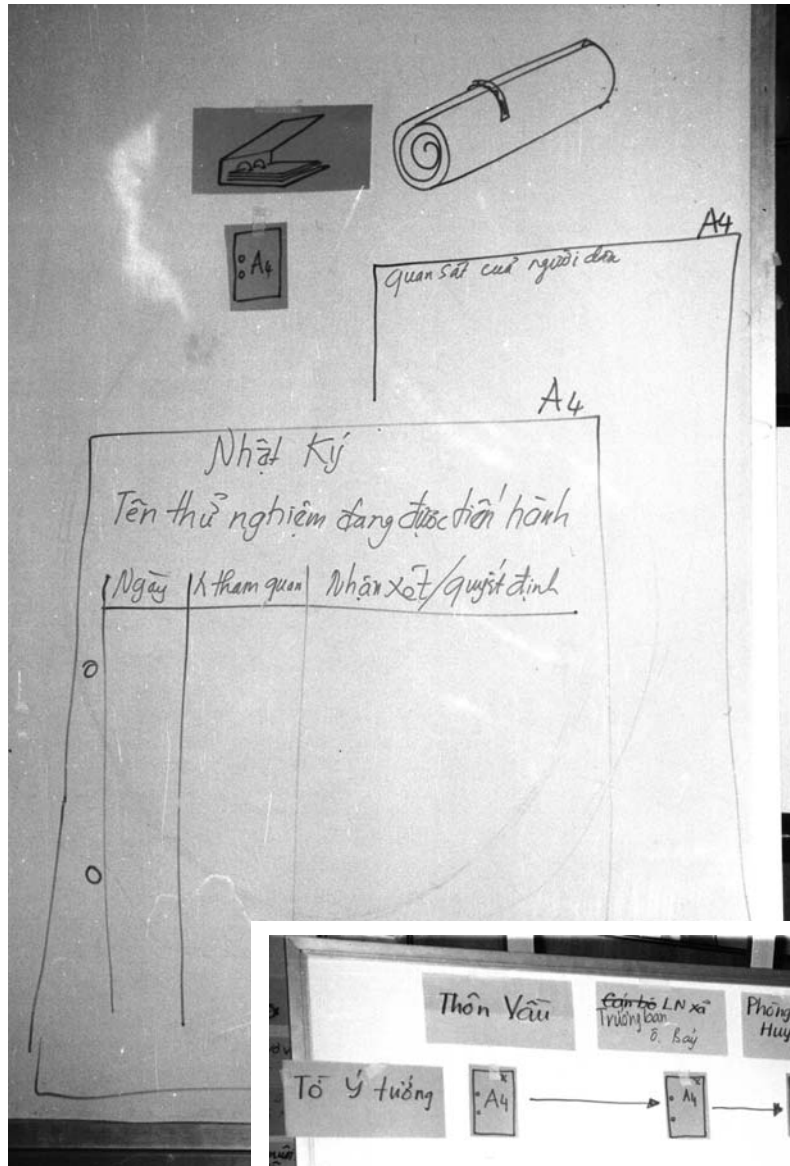 A4
A4
Quan sát cuả người dân
A4
Nhật Ký
Tên thử nghiệm đang được tiến hành
Ngày K tham quan Nhận xét/quyết định
Thôn Vầu
Cán bộ LN xã
Trưởng ban
ô. Bảy
Phòng
Huy
Tờ Ý tưởng
A4
A4